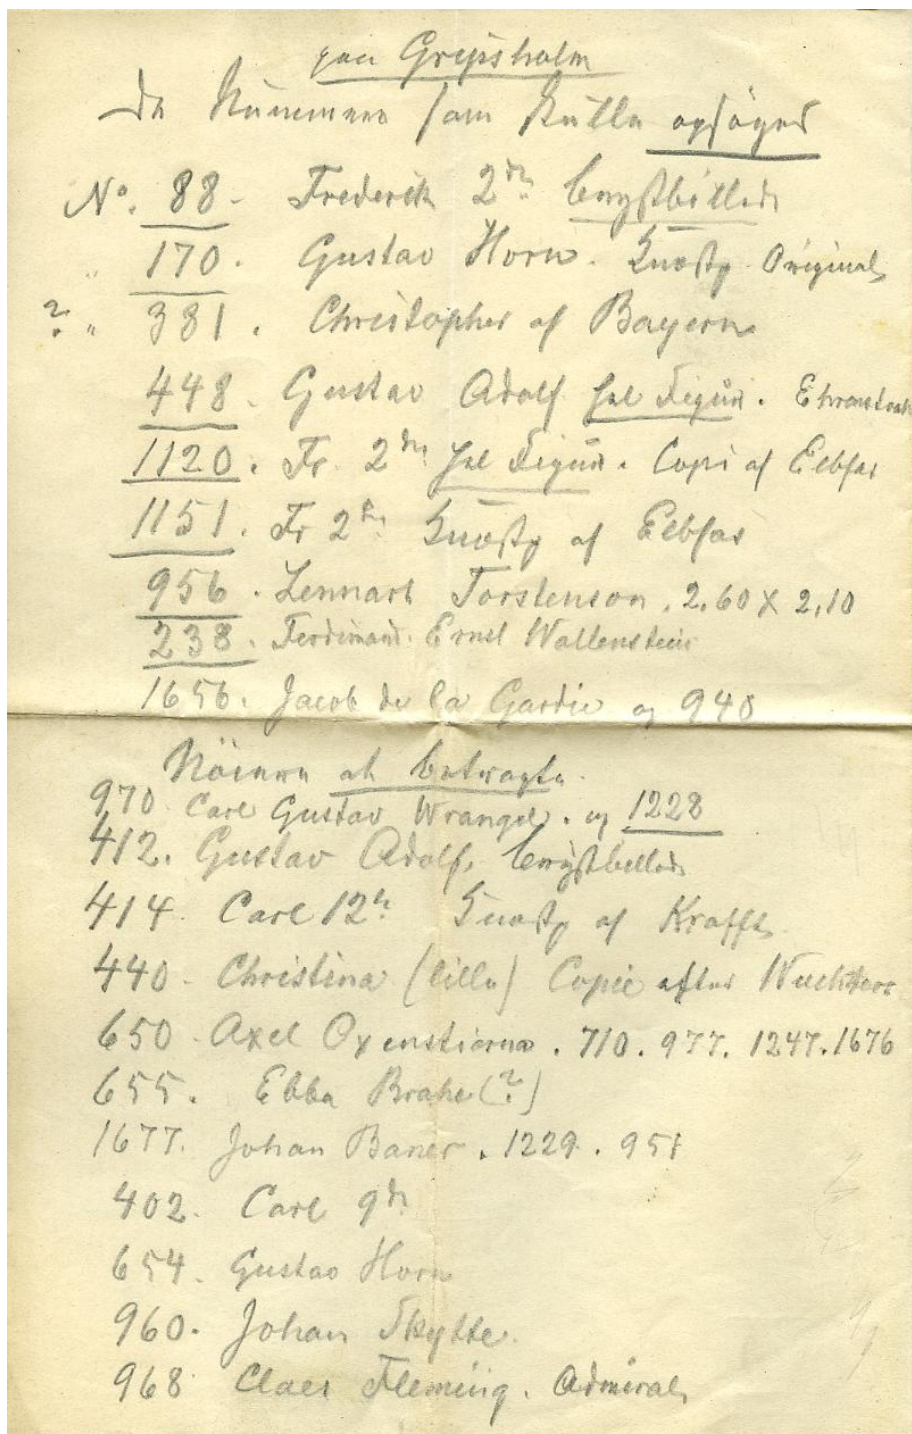 paa Gripsholm
De Nummere som skulle opsøges
No. 88. Frederik 2den Brystbilled
" 170. Gustav Horn. Knæstk Original
? " 381. Christopher af Bayern
448. Gustav Adolf hel Figur. Ehrenstrahl
1120. Fr. 2den hel Figur. Copi af Elbfas
1151. Fr 2den Knæstk af Elbfas
956. Lennart Torstenson. 2.60 X 2.10
238. Ferdinand. Ernst Wallenstein
1656. Jacob de la Gardie og 940
Nøiere at betragte.
970 Carl Gustav Wrangel. og 1228
412. Gustav Adolf. Brystbilled
414. Carl 12te Knæstk af Krafft
440. Christina (lille) Copie efter Wuchters
650. Axel Oxenstierna. 710. 977. 1247. 1676
655. Ebba Brahe (?)
1677. Johan Baner. 1229. 957
402. Carl 9de
654. Gustav Horn
960. Johan Skytte.
968 Claes Fleming. Admiral